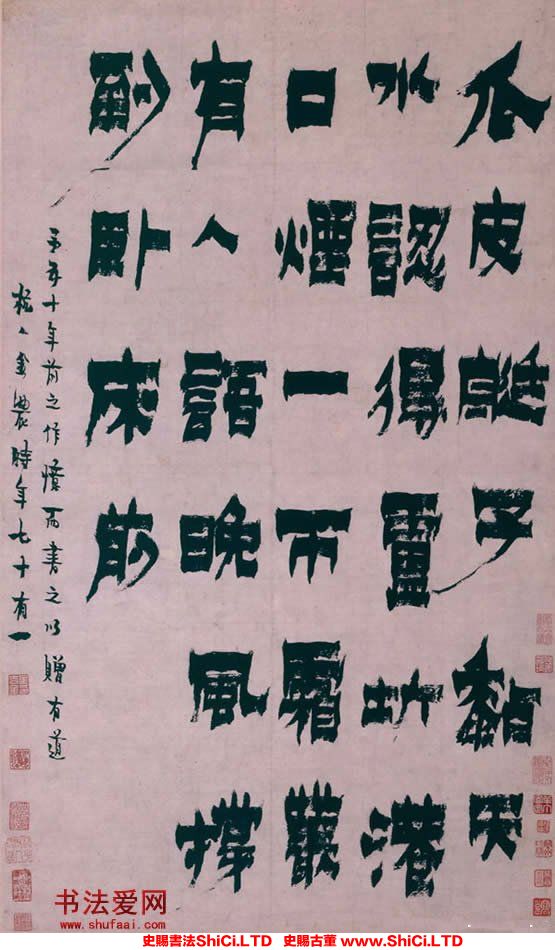 瓜皮艇子黏天
水認得靈圻港
口煙一市霜叢
有人語晚風撐
到臥床前
五年十年前之作憶而書之以贈有道
杭人金農時年七十有一
书法爱网
www.shufaai.com
史賜書法ShiCi.LTD 史賜古董 www.ShiCi.LTD